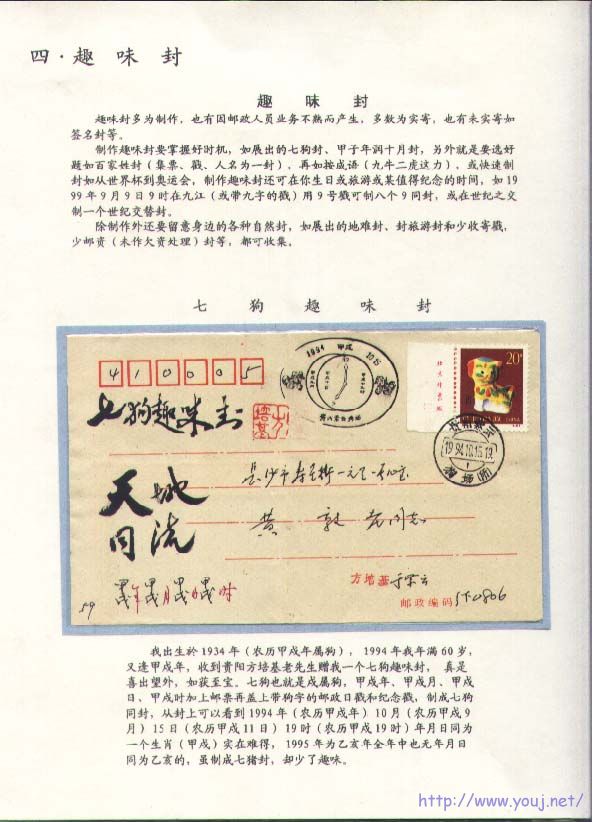 四·趣 味 封
趣 味 封
趣味封多为制作，也有因邮政人员业务不熟而产生，多数为实寄，也有未实寄如
签名封等。
制作趣味封要掌握好时机，如展出的七狗封、甲子年润十月封，另外就是要选好
题如百家姓封（集票、戳、人名为一封），再如按成语（九牛二虎这力），或快速制
封如从世界杯到奥运会，制作趣味封还可在你生日或旅游或某值得纪念的时间，如19
99年9月9日9时在九江（或带九字的戳）用9号戳可制八个9同封，或在世纪之交
制一个世纪交替封。
除制作外还要留意身边的各种自然封，如展出的地难封、封旅游封和少收寄戳，
少邮资（未作欠资处理）封等，都可收集。
七 狗 趣 味 封
410005
1994 甲戌 10.15
20分
七狗趣味封
1994.10.15.19
天地
同流
长沙市
黄 敦 同志
方培基于
邮政编码
59
我出生於1934年（农历甲戌年属狗），1994年我年满60岁，
又逢甲戌年，收到贵阳方培基老先生赠我一个七狗趣味封， 真是
喜出望外，如获至宝。七狗也就是戌属狗，甲戌年、甲戌月、甲戌
日、甲戌时加上邮票再盖上带狗字的邮政日戳和纪念戳，制成七狗
同封，从封上可以看到1994年（农历甲戌年）10月（农历甲戌9
月）15日（农历甲戌11日）19时（农历甲戌19时）年月日同为
一个生肖（甲戌）实在难得，1995年为乙亥年全年中也无年月日
同为乙亥的，虽制成七猪封，却少了趣味。
http://www.youj.net/